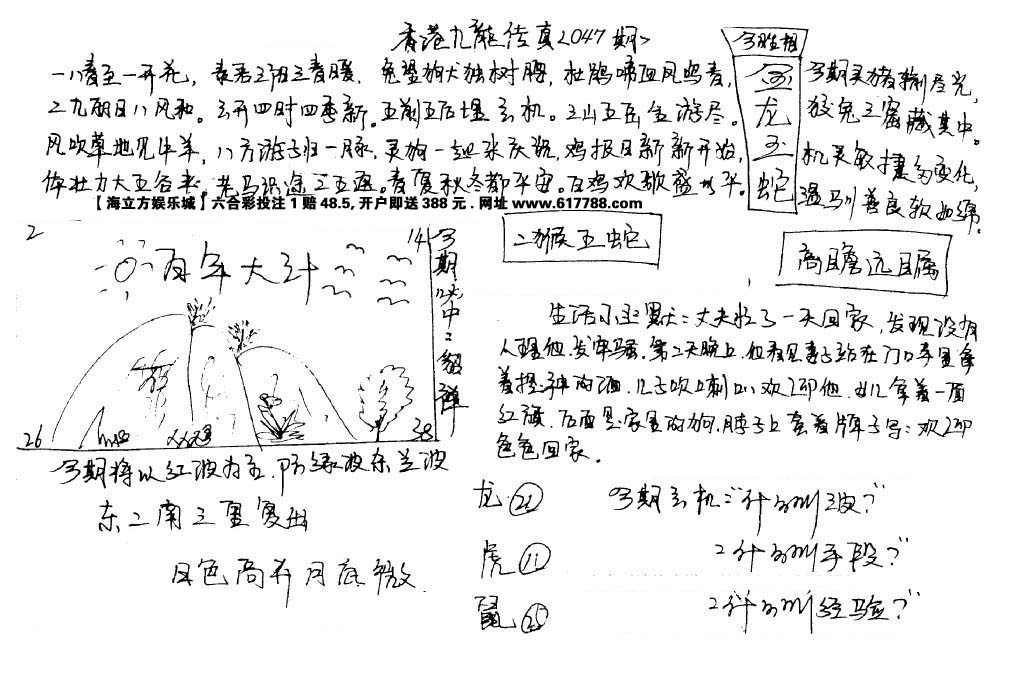 香港九龍传真2047期
今期生相
金龙玉蛇
一八春至一开花，春君三祖三春暖，兔望狗犬独树腰，杜鹃啼血凤鸟春，
二九朝日八风和。玄开四时四季新。五前五后握玄机。三山五岳金游尽。
风吹草地见牛羊，八方游子归一脉，灵狗一起来庆祝，鸡报日新新开始，
体壮力大五谷丰。老马识途二五逐。春夏秋冬都平安。百鸡欢歌盛太平。
今期灵猪捌尽光，
狡兔三窟藏其中。
机灵敏捷多变化，
温马川善良软如绵。
【海立方娱乐城】六合彩投注1赔48.5, 开户即送388元. 网址 www.617788.com
2
14
百年大计
26
38
今期
中：
二猴五蛇
高瞻远瞩
生活小幽默：丈夫忙了一天回家，发现没有
人理他，发牢骚，第二天晚上，他看见妻子站在门口手里拿
着拖鞋和酒，儿子吹喇叭欢迎他，女儿拿着一面
红旗，后面是家里的狗，脖子上套着牌子写：欢迎
色色回家。
今期将以红波为主，防绿波东兰波
东二南三里寞出
日色高升月底微
龙 22
虎 11
鼠 25
今期玄机："什么叫波？"
2什么叫手段？"
2什么叫经验？"